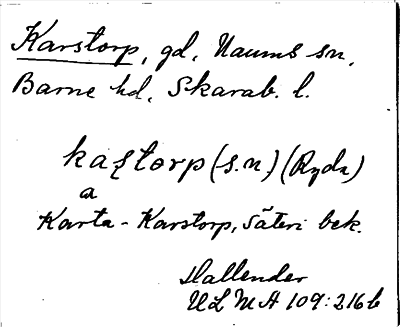 Karstorp, gd, Naums sn,
Barne hd, Skarab. l.
kaʂtorp (s.n.) (Ryda)
a
Karta - Karstorp, säteri bek.
Hallender
ULMA 109:216 b